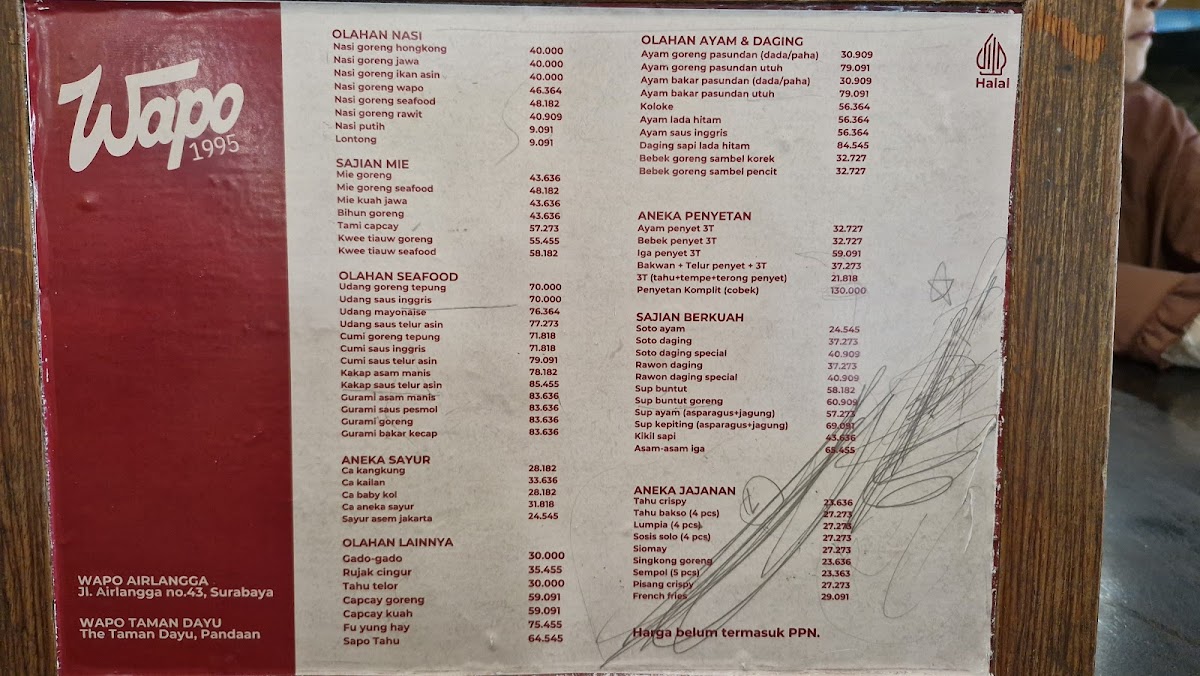 Wapo
1995
WAPO AIRLANGGA
Jl. Airlangga no.43, Surabaya
WAPO TAMAN DAYU
The Taman Dayu, Pandaan
OLAHAN NASI
Nasi goreng hongkong 40.000
Nasi goreng jawa 40.000
Nasi goreng ikan asin 40.000
Nasi goreng wapo 46.364
Nasi goreng seafood 48.182
Nasi goreng rawit 40.909
Nasi putih 9.091
Lontong 9.091
SAJIAN MIE
Mie goreng 43.636
Mie goreng seafood 48.182
Mie kuah jawa 43.636
Bihun goreng 43.636
Tami capcay 57.273
Kwee tiauw goreng 55.455
Kwee tiauw seafood 58.182
OLAHAN SEAFOOD
Udang goreng tepung 70.000
Udang saus inggris 70.000
Udang mayonaise 76.364
Udang saus telur asin 77.273
Cumi goreng tepung 71.818
Cumi saus inggris 71.818
Cumi saus telur asin 79.091
Kakap asam manis 78.182
Kakap saus telur asin 85.455
Gurami asam manis 83.636
Gurami saus pesmol 83.636
Gurami goreng 83.636
Gurami bakar kecap 83.636
ANEKA SAYUR
Ca kangkung 28.182
Ca kailan 33.636
Ca baby kol 28.182
Ca aneka sayur 31.818
Sayur asem jakarta 24.545
OLAHAN LAINNYA
Gado-gado 30.000
Rujak cingur 35.455
Tahu telor 30.000
Capcay goreng 59.091
Capcay kuah 59.091
Fu yung hay 75.455
Sapo Tahu 64.545
OLAHAN AYAM & DAGING
Ayam goreng pasundan (dada/paha) 30.909
Ayam goreng pasundan utuh 79.091
Ayam bakar pasundan (dada/paha) 30.909
Ayam bakar pasundan utuh 79.091
Koloke 56.364
Ayam lada hitam 56.364
Ayam saus inggris 56.364
Daging sapi lada hitam 84.545
Bebek goreng sambel korek 32.727
Bebek goreng sambel pencit 32.727
ANEKA PENYETAN
Ayam penyet 3T 32.727
Bebek penyet 3T 32.727
Iga penyet 3T 59.091
Bakwan + Telur penyet + 3T 37.273
3T (tahu+tempe+terong penyet) 21.818
Penyetan Komplit (cobek) 130.000
SAJIAN BERKUAH
Soto ayam 24.545
Soto daging 37.273
Soto daging special 40.909
Rawon daging 37.273
Rawon daging special 40.909
Sup buntut 58.182
Sup buntut goreng 60.909
Sup ayam (asparagus+jagung) 57.273
Sup kepiting (asparagus+jagung) 69.091
Kikil sapi 43.636
Asam-asam iga 65.455
ANEKA JAJANAN
Tahu crispy 23.636
Tahu bakso (4 pcs) 27.273
Lumpia (4 pcs) 27.273
Sosis solo (4 pcs) 27.273
Siomay 27.273
Singkong goreng 23.636
Sempol (5 pcs) 23.363
Pisang crispy 27.273
French fries 29.091
Harga belum termasuk PPN.
Halal